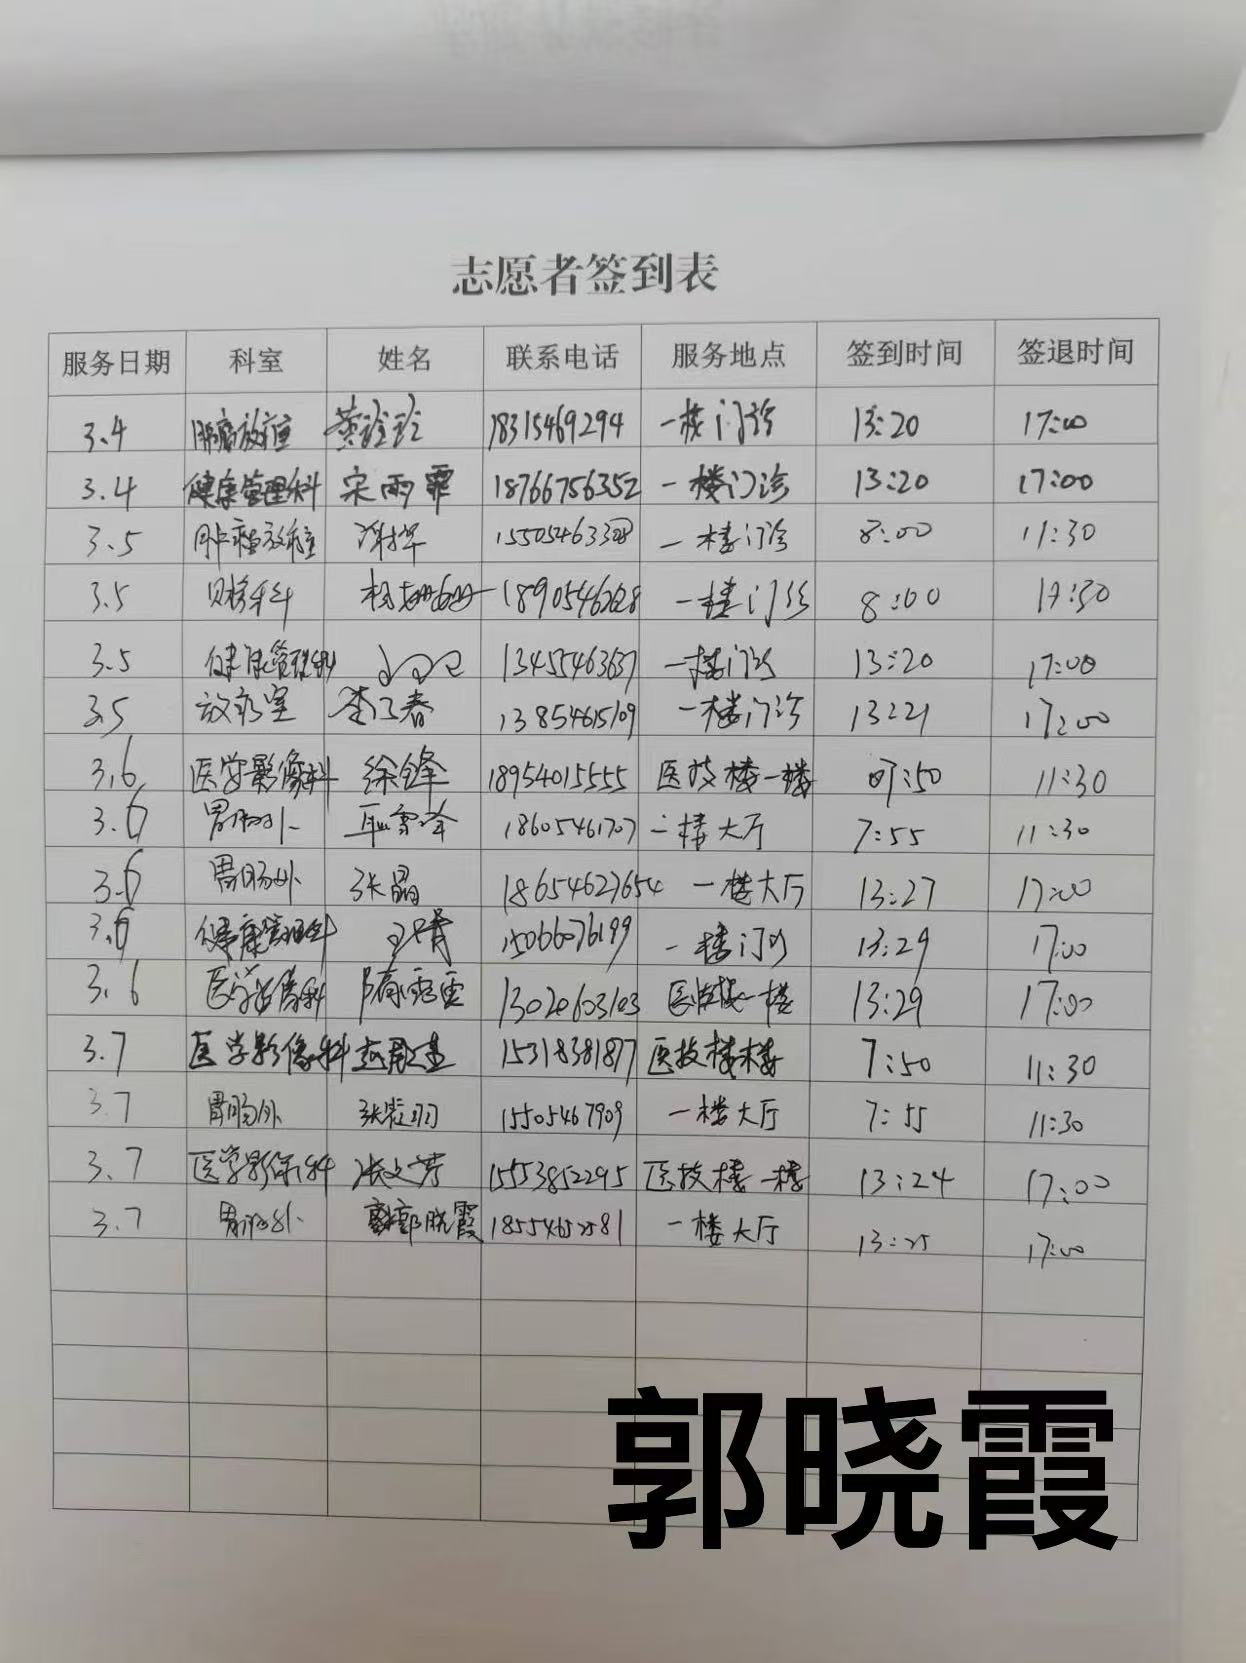 志愿者签到表
服务日期 科室 姓名 联系电话 服务地点 签到时间 签退时间
3.4 肿瘤放疗 18315469294 一楼门诊 13:20 17:00
3.4 健康管理科 宋雨霏 18766756352 一楼门诊 13:20 17:00
3.5 一楼门诊 8:00 11:30
3.5 财务科 杨姗姗 一楼门诊 8:00
3.5 健康管理科 13455463637 一楼门诊 13:20 17:00
3.5 放疗室 李江春 13854615109 一楼门诊 13:21 17:00
3.6 医学影像科 徐锋 18954015555 医技楼一楼 07:50 11:30
3.6 胃肠外 18605461707 一楼大厅 7:55 11:30
3.6 胃肠外 张晶 18654627654 一楼大厅 13:27 17:00
3.6 健康管理科 15066076199 一楼门诊 13:29 17:00
3.6 医学影像科 隋雪雯 13020603103 医技楼一楼 13:29 17:00
3.7 医学影像科 15318381877 医技楼楼 7:50 11:30
3.7 胃肠外 15505467909 一楼大厅 7:55 11:30
3.7 医学影像科 张文芳 15553852295 医技楼一楼 13:24 17:00
3.7 胃肠外 郭晓霞 18554652581 一楼大厅 13:25 17:00
郭晓霞